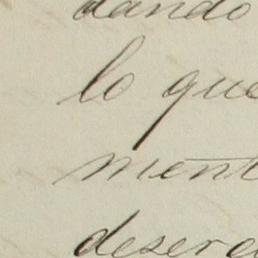 dando
lo que
ment
desere